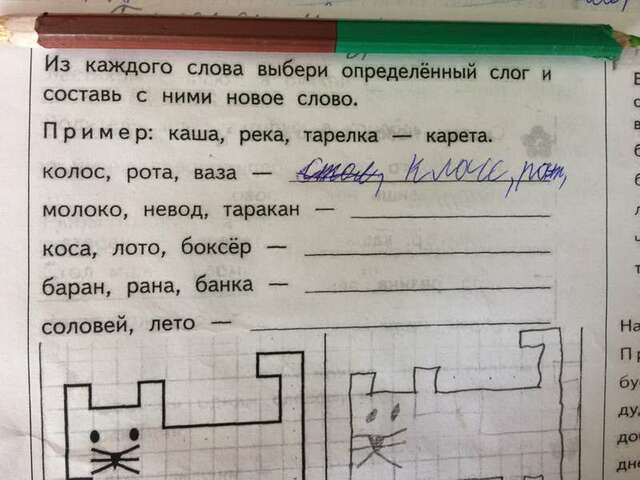 Из каждого слова выбери определённый слог и
составь с ними новое слово.
Пример: каша, река, тарелка — карета.
колос, рота, ваза —
молоко, невод, таракан —
коса, лото, боксёр —
баран, рана, банка —
соловей, лето —